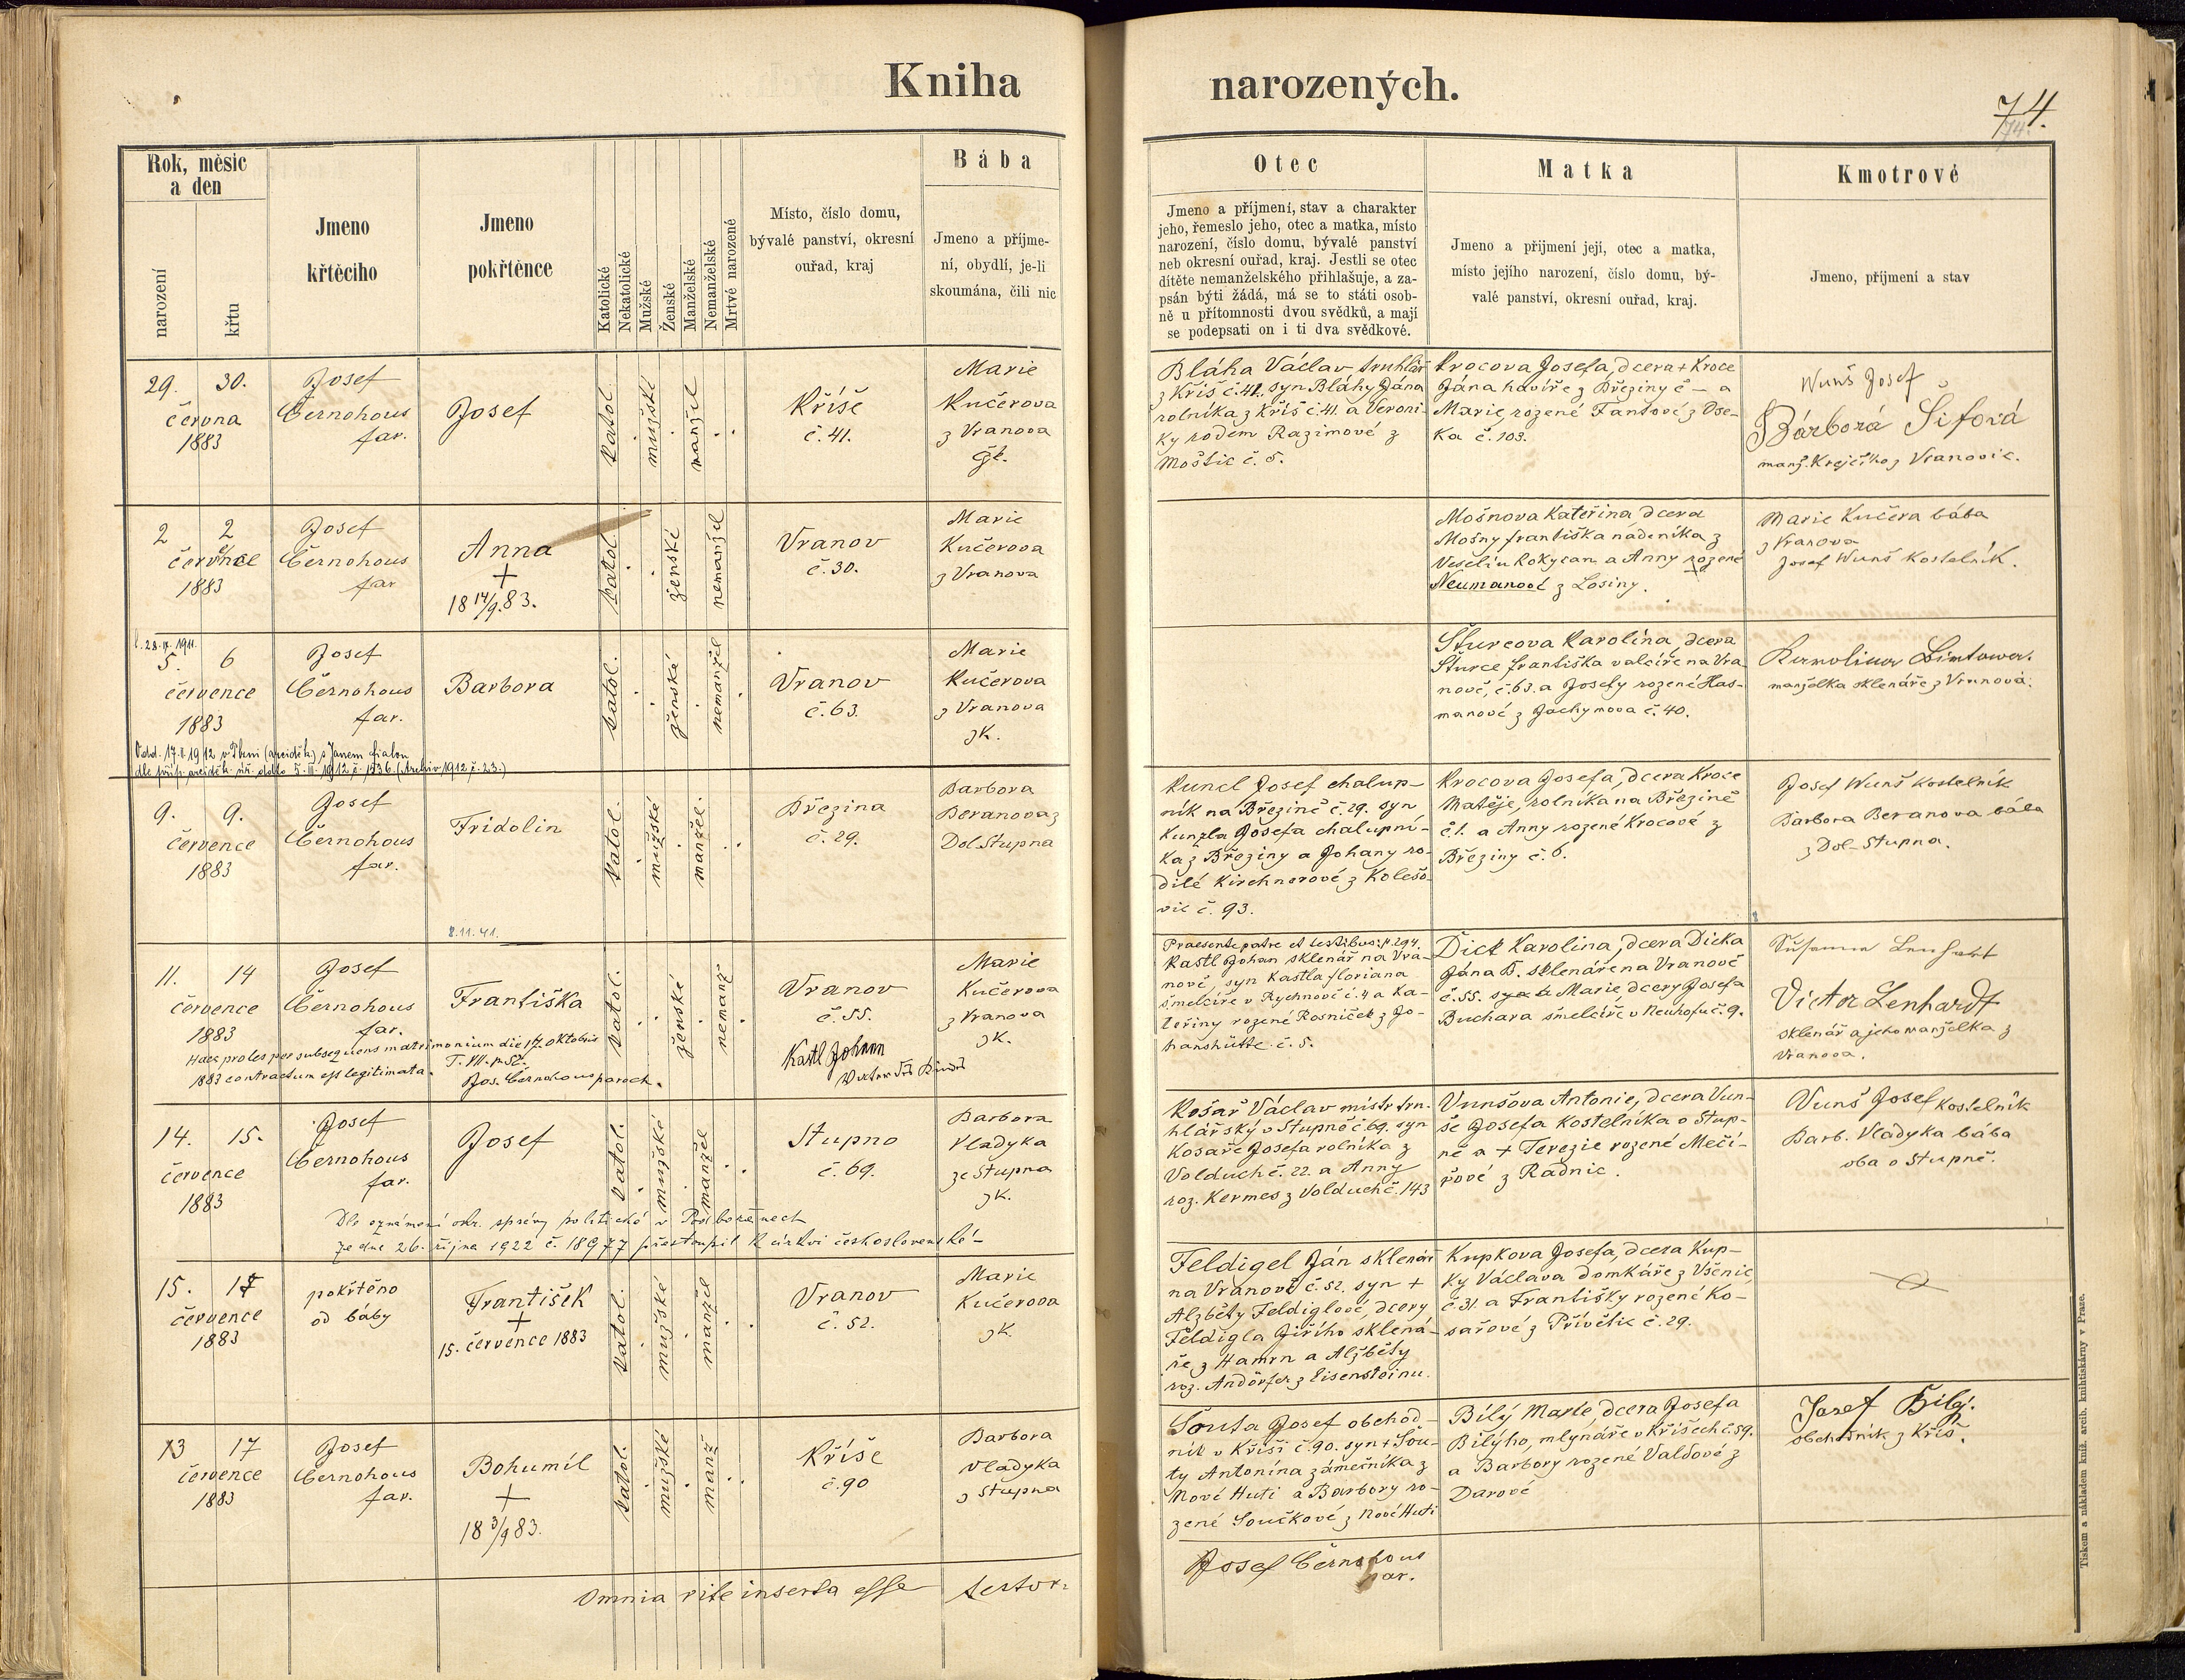 Kniha narozených.
74.
74.
Rok, měsíc
a den
narození
křtu
Jmeno
křtěcího
Jmeno
pokřtěnce
Katolické
Nekatolické
Mužské
Ženské
Manželské
Nemanželské
Mrtvé narozené
Místo, číslo domu,
bývalé panství, okresní
ouřad, kraj
Bába
Jmeno a příjme-
ní, obydlí, je-li
skoumána, čili nic
Otec
Jmeno a příjmení, stav a charakter
jeho, řemeslo jeho, otec a matka, místo
narození, číslo domu, bývalé panství
neb okresní ouřad, kraj. Jestli se otec
dítěte nemanželského přihlašuje, a za-
psán býti žádá, má se to státi osob-
ně u přítomnosti dvou svědků, a mají
se podepsati on i ti dva svědkové.
Matka
Jmeno a přijmení její, otec a matka,
místo jejího narození, číslo domu, bý-
valé panství, okresní ouřad, kraj.
Kmotrové
Jmeno, příjmení a stav
29. 30.
června
1883
Josef
Černohous
far.
Josef
katol.
mužské
manžel
Kříše
č. 41.
Marie
Kučerova
z Vranova
Bláha Václav truhlář
z Kříš č. 41. syn Bláhy Jána
rolníka z Kříš č. 41. a Veroni-
ky rodem Razimové z
Moštic č. 5.
Krocova Josefa, dcera + Kroce
Jána havíře z Březiny č – a
Marie, rozené Fantové z Ose-
ka č. 103.
Wunš Josef
Bárborá Šifová
manž. Krejčího z Vranovic.
2 2
července
1883
Josef
Černohous
far
Anna
+
18 14/9. 83.
katol.
ženské
nemanžel
Vranov
č. 30.
Marie
Kučerova
z Vranova
Mošnova Kateřina, dcera
Mošny františka nádeníka z
Veselí u Rokycan a Anny rozené
Neumanové z Losiny.
Marie Kučera bába
z Vranova
Josef Wunš kostelník.
5. 6
července
1883
Josef
Černohous
far.
Barbora
katol.
ženské
nemanžel
Vranov
č. 63.
Marie
Kučerova
z Vranova
zk.
Šturcova Karolína, dcera
Šturce františka valcíře na Vra-
nově, č. 63. a Josefy rozené Has-
manové z Jáchymova č. 40.
manželka sklenáře z Vranova.
9. 9.
července
1883
Josef
Černohous
far.
Fridolin
8. 11. 41.
katol.
mužské
manžel.
Březina
č. 29.
Barbora
Beranova z
Dol. Stupna
Kuncl Josef chalup-
ník na Březině č. 29. syn
Kunzla Josefa chalupní-
ka z Březiny a Johany ro-
dilé Kirchnerové z Kolešo-
vic č. 93.
Krocova Josefa, dcera Kroce
Matěje, rolníka na Březině
č. 1. a Anny rozené Krocové z
Březiny č. 6.
Josef Wunš kostelník
Barbora Beranova bába
z Dol-Stupna.
11. 14
července
1883
Josef
Černohous
far.
Františka
katol.
ženské
nemanž
Vranov
č. 55.
Marie
Kučerova
z Vranova
zk.
Haec proles per subsequens matrimonium die 17. oktobris
1883 contractum est legitimata.
Jos. Černohous paroch.
Kastl Johann
Vater des Kindes
Praesente patre et testibus: p. 294.
Kastl Johan sklenář na Vra-
nově, syn Kastla floriana
šmelcíře v Rychnově č. 4 a Ka-
teřiny rozené Rosniček z Jo-
hanshütte č. 5.
Dick Karolina, dcera Dicka
Jána B. sklenáře na Vranově
č. 55. Marie dcery Josefa
Buchara šmelcíře v Neuhofu č. 9.
Susanna Lenhart
Victor Lenhardt
sklenář a jeho manželka z
Vranova.
14. 15.
července
1883
Josef
Černohous
far.
Josef
katol.
mužské
manžel
Stupno
č. 69.
Barbora
Vladyka
ze Stupna
zk.
Dle oznámení okr. správy politické v Podbořanech
ze dne 26. října 1922 č. 18977 přestoupil k církvi československé
Košař Václav mistr tru-
hlářský v Stupně č. 69. syn
Košaře Josefa rolníka z
Volduch č. 22. a Anny
roz. Kermes z Volduch č. 143
Vunšova Antonie, dcera Vun-
še Josefa kostelníka v Stup-
ně a + Terezie rozené Mečí-
řové z Radnic.
Vunš Josef kostelník
Barb. Vladyka bába
oba v Stupně.
15. 17
července
1883
pokřtěno
od báby
František
+
15. července 1883
katol.
mužské
manžel
Vranov
č. 52.
Marie
Kučerova
zk.
Feldigel Ján sklenář
na Vranově č. 52. syn +
Alžběty Feldiglové, dcery
Feldigla Jiřího sklená-
ře z Hamrn a Alžběty
roz. Andörfer z Eisensteinu.
Kupkova Josefa, dcera Kup-
ky Václava domkáře z Všenic
č. 31. a Františky rozené Ko-
sařové z Přívětic č. 29.
13 17
července
1883
Josef
Černohous
far.
Bohumíl
+
18 3/9 83.
katol.
mužské
manž
Kříše
č. 90
Barbora
Vladyka
z Stupna
Šouta Josef obchod-
ník v Kříši č. 90. syn + Šou-
ty Antonína zámečníka z
Nové Huti a Barbory ro-
zené Součkové z Nové Huti
Bílý Marie, dcera Josefa
Bílýho, mlynáře v Kříšech č. 59.
a Barbory rozené Valdové z
Darové
Josef Bílý.
obchodník z Kříš.
Omnia rite inserta esse testor.
Josef Černohous
far.
Tiskem a nákladem kníž. arcib. knihtiskárny v Praze.